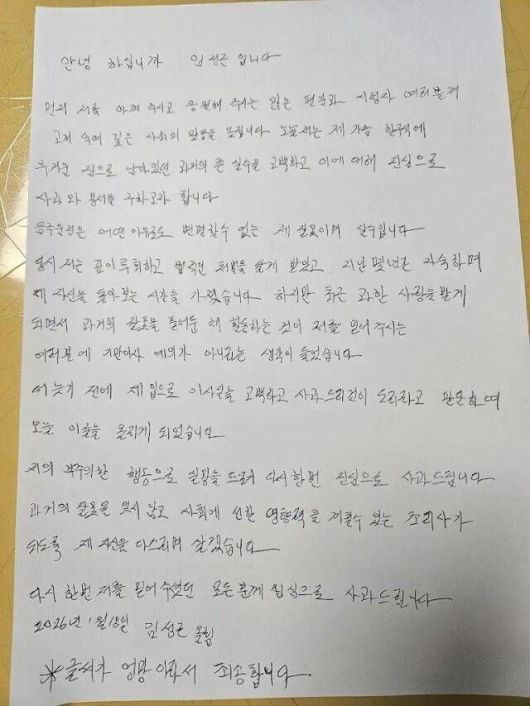 안녕 하십니까 임성근 입니다
먼저 저를 아껴 주시고 응원해 주시는 많은 팬분과 시청자 여러분께
고개 숙여 깊은 사죄의 말씀을 드립니다 오늘 저는 제 가슴 한구석에
무거운 짐으로 남아있던 과거의 큰 실수를 고백하고 이에 대해 진심으로
사과와 용서를 구하고자 합니다
음주운전은 어떤 이유로도 변명할수 없는 제 잘못이며 실수입니다
당시 저는 깊이 뉘우치고 법적인 처벌을 달게 받았고, 지난 몇년간 자숙하며
제 자신을 돌아보는 시간을 가졌습니다 하지만 최근 과한 사랑을 받게
되면서 과거의 잘못을 묻어둔 채 활동하는 것이 저를 믿어 주시는
여러분에 기만이자 예의가 아니라는 생각이 들었습니다
더 늦기 전에 제 입으로 이사실을 고백하고 사과드리것이 도리라고 판단하여
오늘 이글을 올리게 되었습니다
저의 부주의한 행동으로 실망을 드려 다시한번 진심으로 사과드립니다
과거의 잘못을 잊지 않고 사회에 선한 영향력을 끼칠수 있는 조리사가
되도록 제 자신을 다스리며 살겠습니다
다시 한번 저를 믿어 주셨던 모든 분께 진심으로 사과드립니다
2026년 1월18일 임성근 올림
※글씨가 엉망이라서 죄송합니다